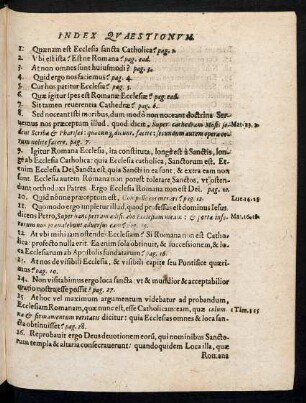 INDEX QVAESTIONVM.
1. Quænam est Ecclesia sancta Catholica? pag. 2.
2. Vbi est ista? Estne Romana? pag. ead.
3. At non omnes sunt huiusmodi? pag. 3.
4. Quid ergo nos faciemus? pag. 4.
5. Cur hos patitur Ecclesia? pag. 5.
6. Quæ igitur spes est Romanæ Ecclesiæ? pag. ead.
7. Sit tamen reuerentia Cathedræ? pag. 6.
8. Sed noceant isti moribus, dum modò non noceant doctrina. Ser-
uetur nos præceptum illud, quod iubet; Super cathedram Mosis se- Mat. 23. 2
dent Scribæ & Pharisei: quæcunq; dicunt, facite; secundum autem opera eorum
nolite facere. pag. 7.
9. Igitur Romana Ecclesia, ita constituta, longè est à Sanctis, lon-
gè ab Ecclesia Catholica: quia Ecclesia catholica, Sanctorum est. Et-
enim Ecclesia Dei, Sancta est, quia Sancti in ea sunt; & extra eam non
sunt. Ecclesia autem Romana non potest tolerare Sanctos, vt osten-
dant orthodoxi Patres. Ergo Ecclesia Romana non est Dei. pag. 11.
20. Quid nónne præceptum est, Luc. 14. 23
21. Quomodo ergo impletur illud, quod professus est dominus Iesus,
dicens Petro, Super hanc petram ædificabo Ecclesiam meam: & portæ infe- Mat. 16. 18
rorum non præualebunt aduersus eam? pag.
22. At vbi mihi tam ostendes Ecclesiam? Si Romana non est Catho-
lica; profecto nulla erit. Ea enim sola obtinuit, & successionem, & la-
tas Ecclesiarum ab Apostolis fundatarum?
23. At nos de visibili Ecclesia, & visibili capite seu Pontifice quæri-
mus? pag. 19.
24. Non visitabimus ergo loca sancta, vt & mutuò or & acceptabilior
oratio nostra esse possit? pag. 27.
25. At hoc vel maximum argumentum videbatur ad probandum,
Ecclesiam Romanam, quæ nunc est, esse Catholicam: quæ, colum- 1 Tim. 3. 15
na & firmamentum veritatis dicitur: quia Ecclesias omnes & loca san-
cta obtinuisset? pag. 28.
26. Reprobauit ergo Deus deuotionem eorū, qui nominibus Sancto-
rum templa & altaria consecrauerunt: quandoquidem Loca illa, quæ
Romana